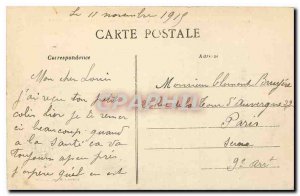 Le 11 novembre 1919
CARTE POSTALE
Correspondance
Adresse
Mon cher Louis
J'ai reçu ton petit
colis hier je te remer
ci beaucoup quand
à la santé ca va
toujours apeu près
j'espère qu'il en est
Monsieur Clément Bruyère
de la Tour d'Auvergne
Paris
Seine
9e Arrt